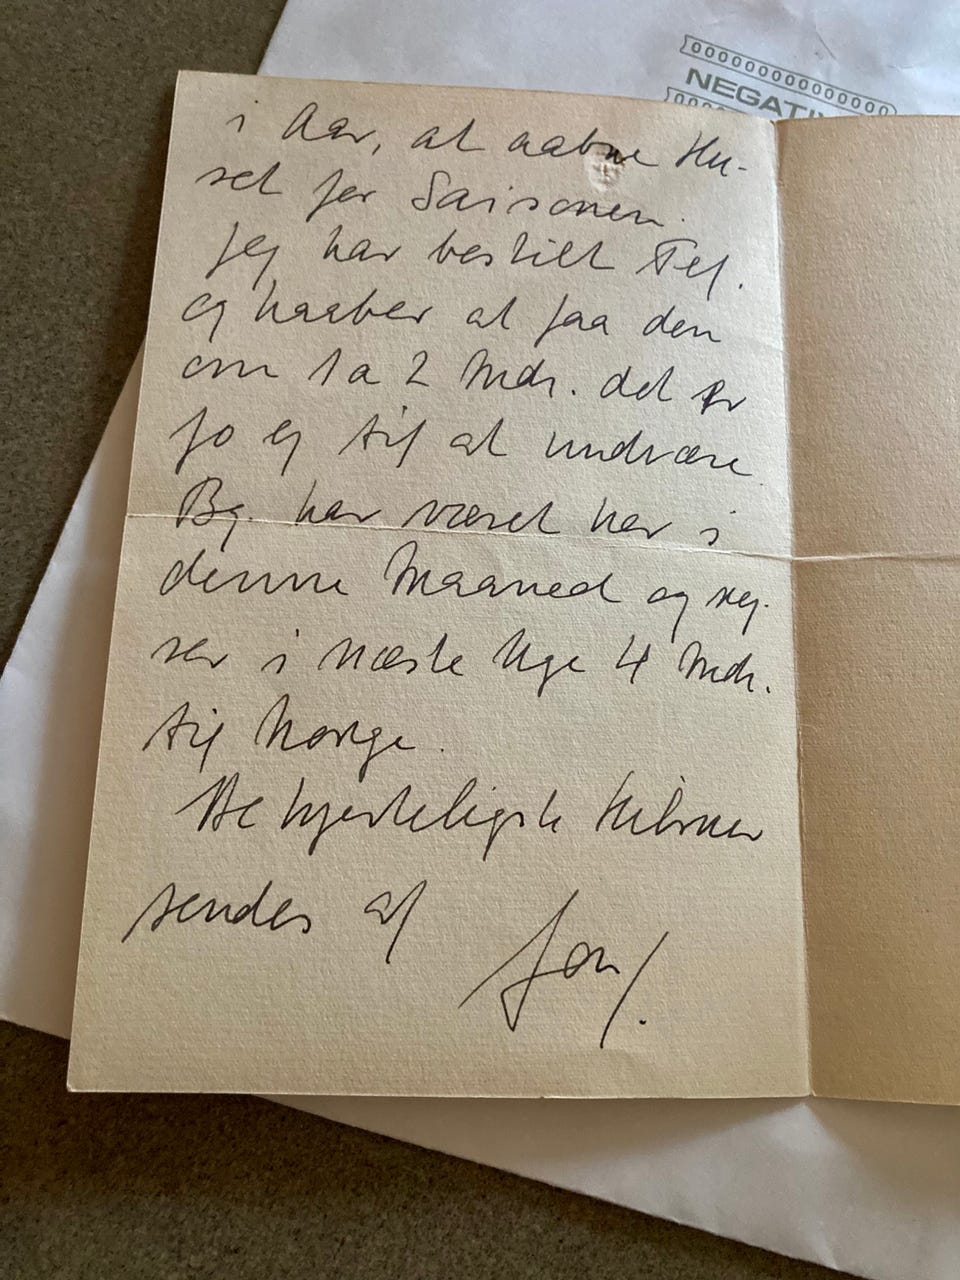 NEGATIV
i Aar, at aabne Hu-
set for Saisonen.
Jeg har bestilt Tel.
og haaber at faa den
om 1 a 2 Mdr. det er
jo ej til at undvære.
Bg. har været her i
denne Maaned og rej-
ser i næste Uge 4 Mdr.
til Norge.
De hjerteligste Hilsner
sendes af